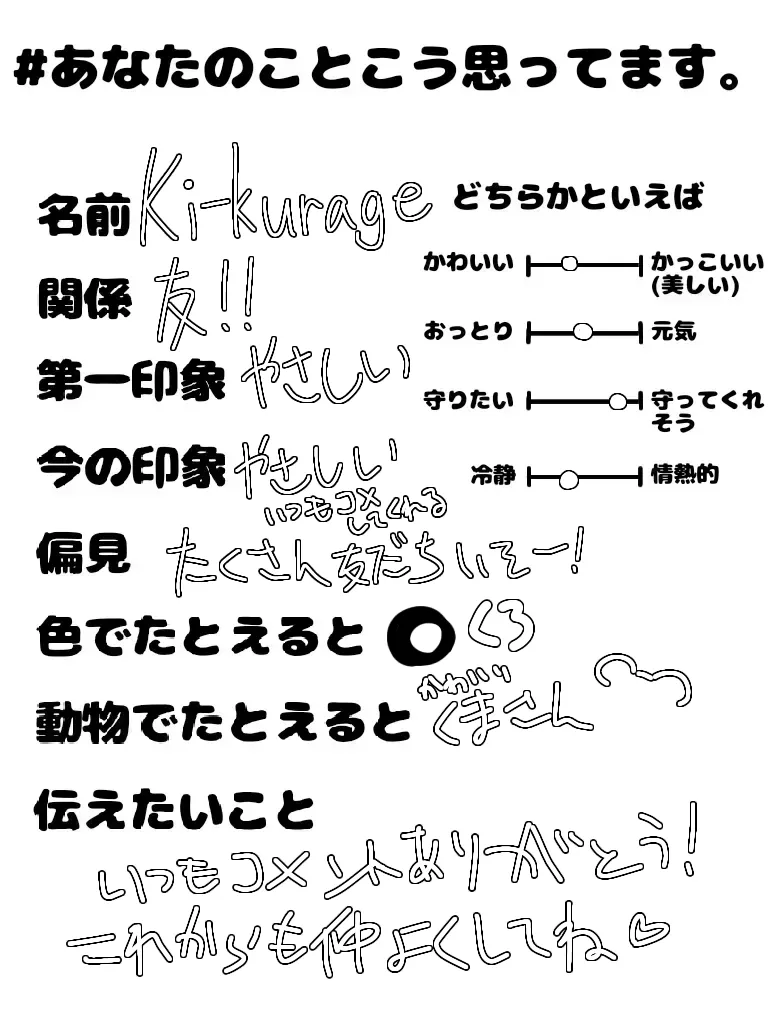 #あなたのことこう思ってます。
名前 Ki-kurage
関係 友!!
第一印象 やさしい
今の印象 やさしい
いつもコメしてくれる
偏見 たくさん友だちいそー!
色でたとえると くろ
動物でたとえると かわいいくまさん
伝えたいこと
いつもコメントありがとう!
これからも仲よくしてね♡
どちらかといえば
かわいい かっこいい
(美しい)
おっとり 元気
守りたい 守ってくれ
そう
冷静 情熱的